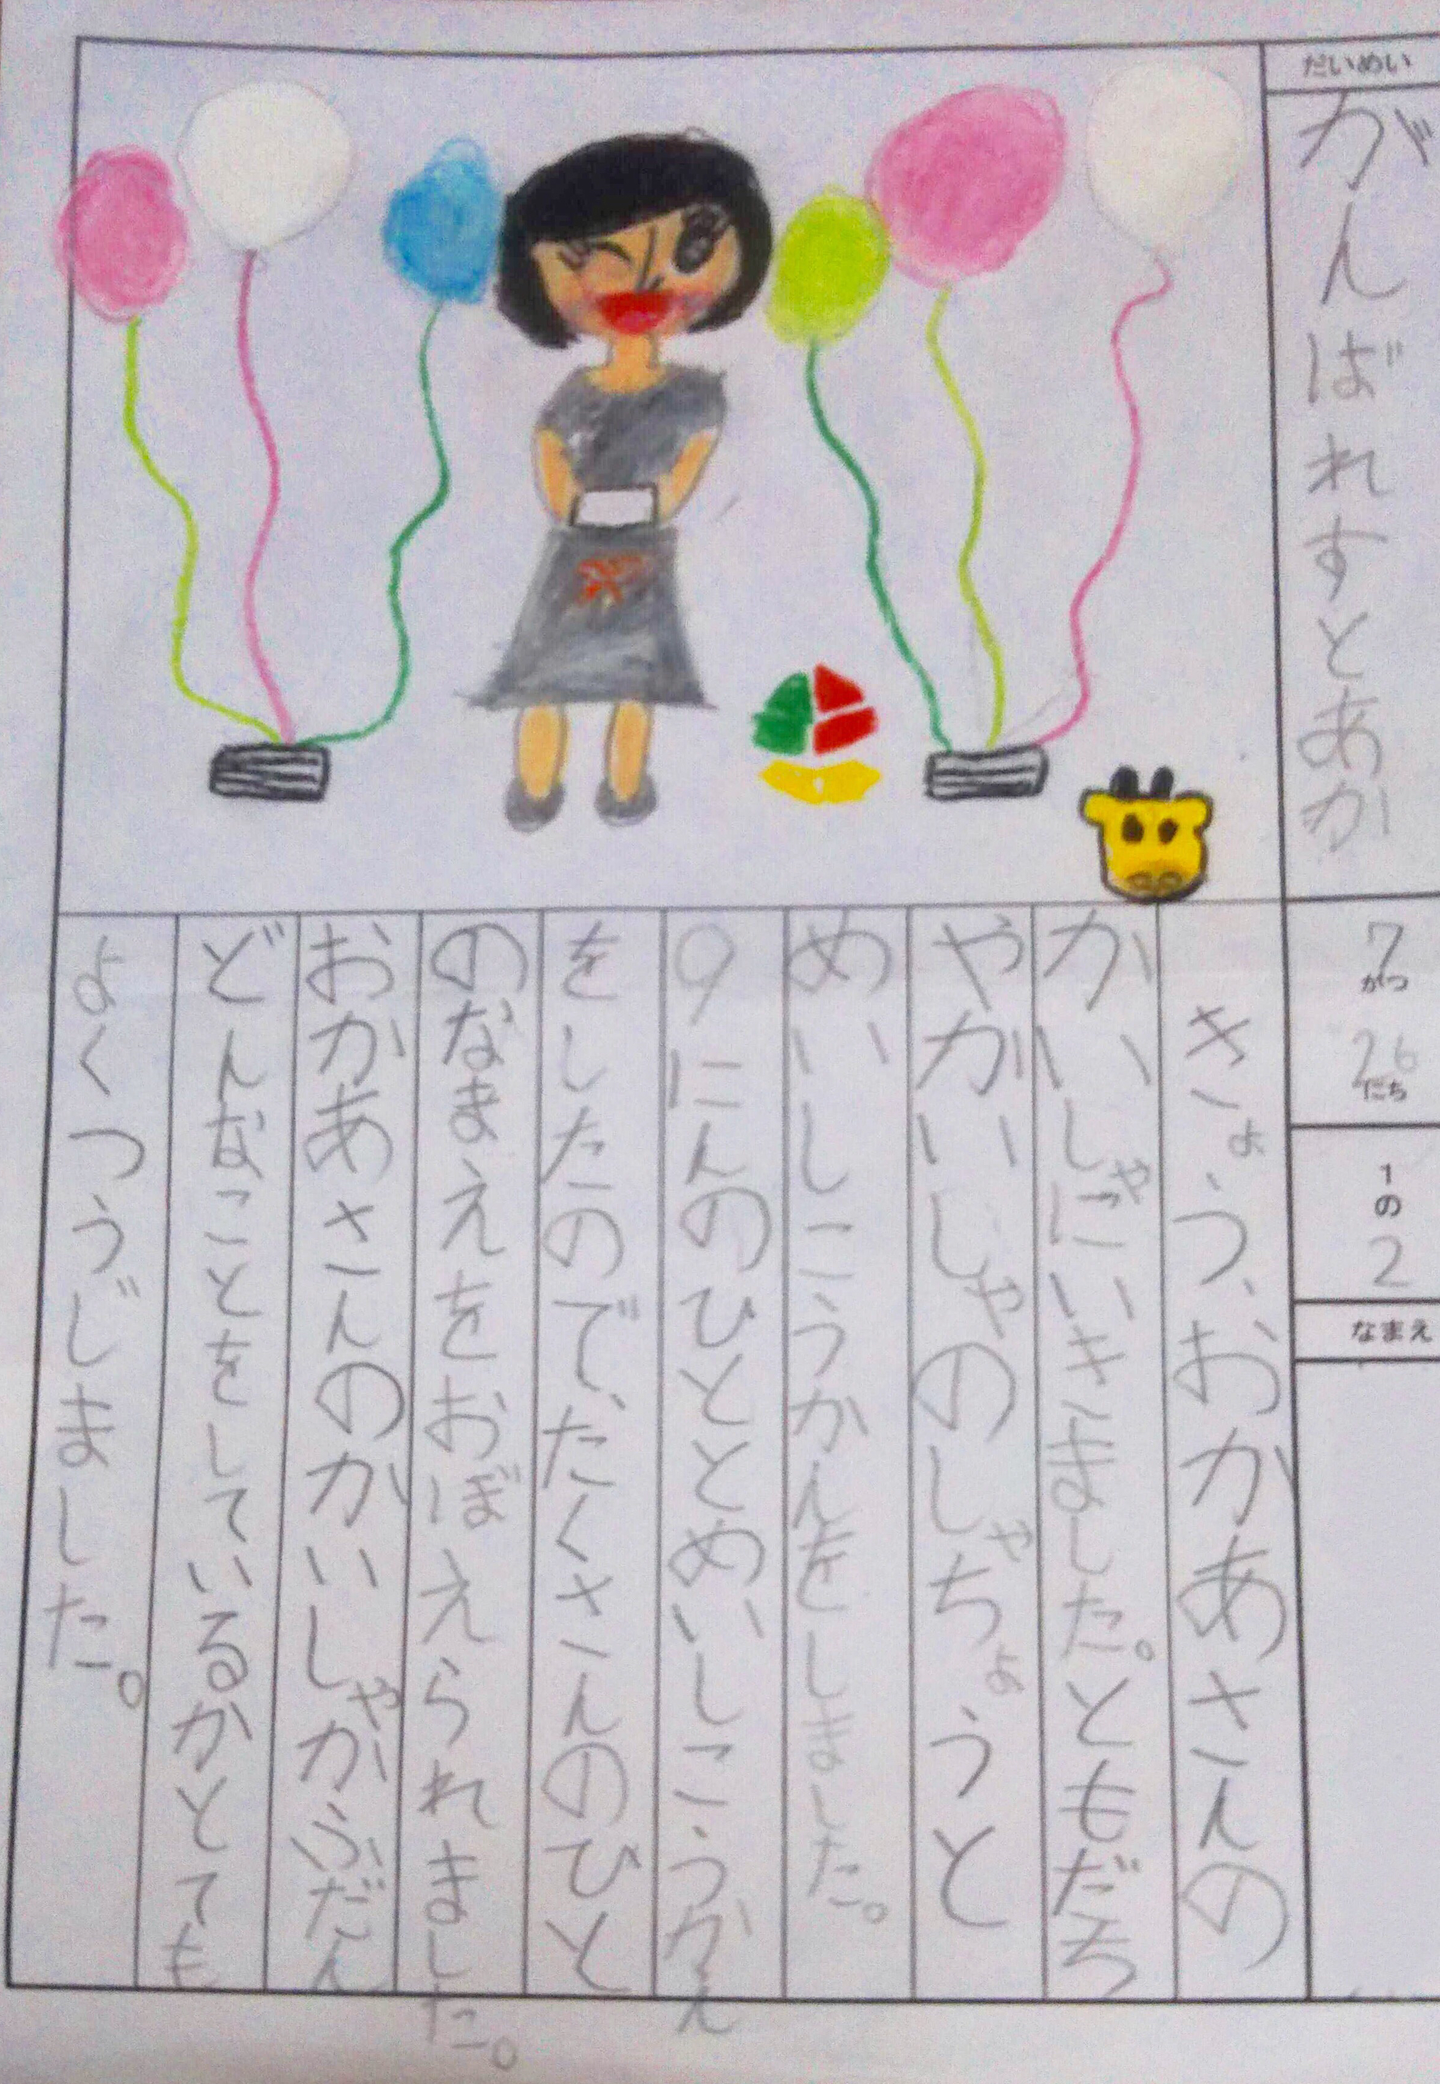 だいめい
がんばれすとあか
7がつ26にち
1の2
なまえ
きょう、おかあさんの
かいしゃにいきました。ともだち
やかいしゃのしゃちょうと
めいしこうかんをしました。
9にんのひととめいしこうかん
をしたので、たくさんのひと
のなまえをおぼえられました。
おかあさんのかいしゃがふだん
どんなことをしているかとても
よくつうじました。